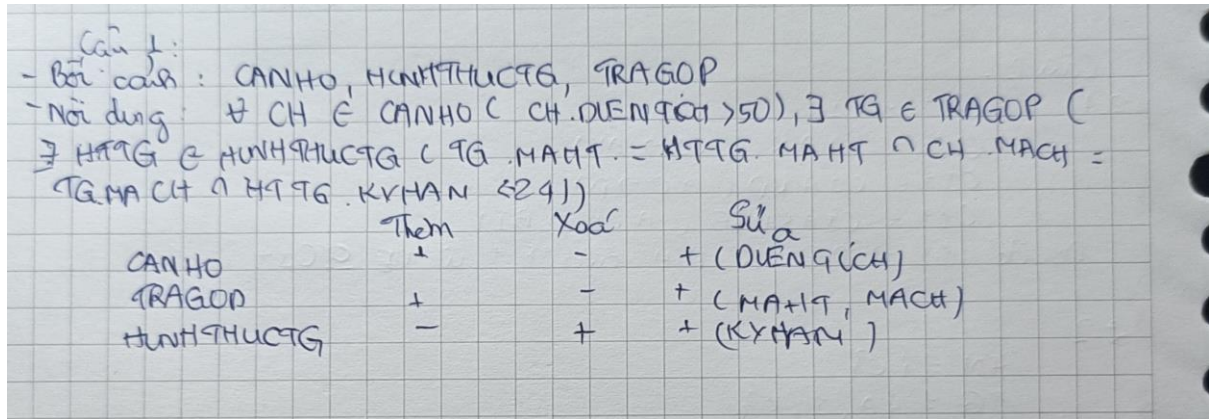 Câu 1:
- Bối cảnh : CANHO, HINHTHUCTG, TRAGOP
- Nội dung : ∀ CH ∈ CANHO ( CH.DIENTICH >50), ∃ TG ∈ TRAGOP (
∃ HTTG ∈ HINHTHUCTG ( TG.MAHT. = HTTG.MAHT ∩ CH.MACH =
TG.MACH ∩ HTTG.KYHAN <24))
Thêm Xoá Sửa
CANHO + - + (DIENTICH)
TRAGOP + - + (MAHT, MACH)
HINHTHUCTG - + + (KYHAN)